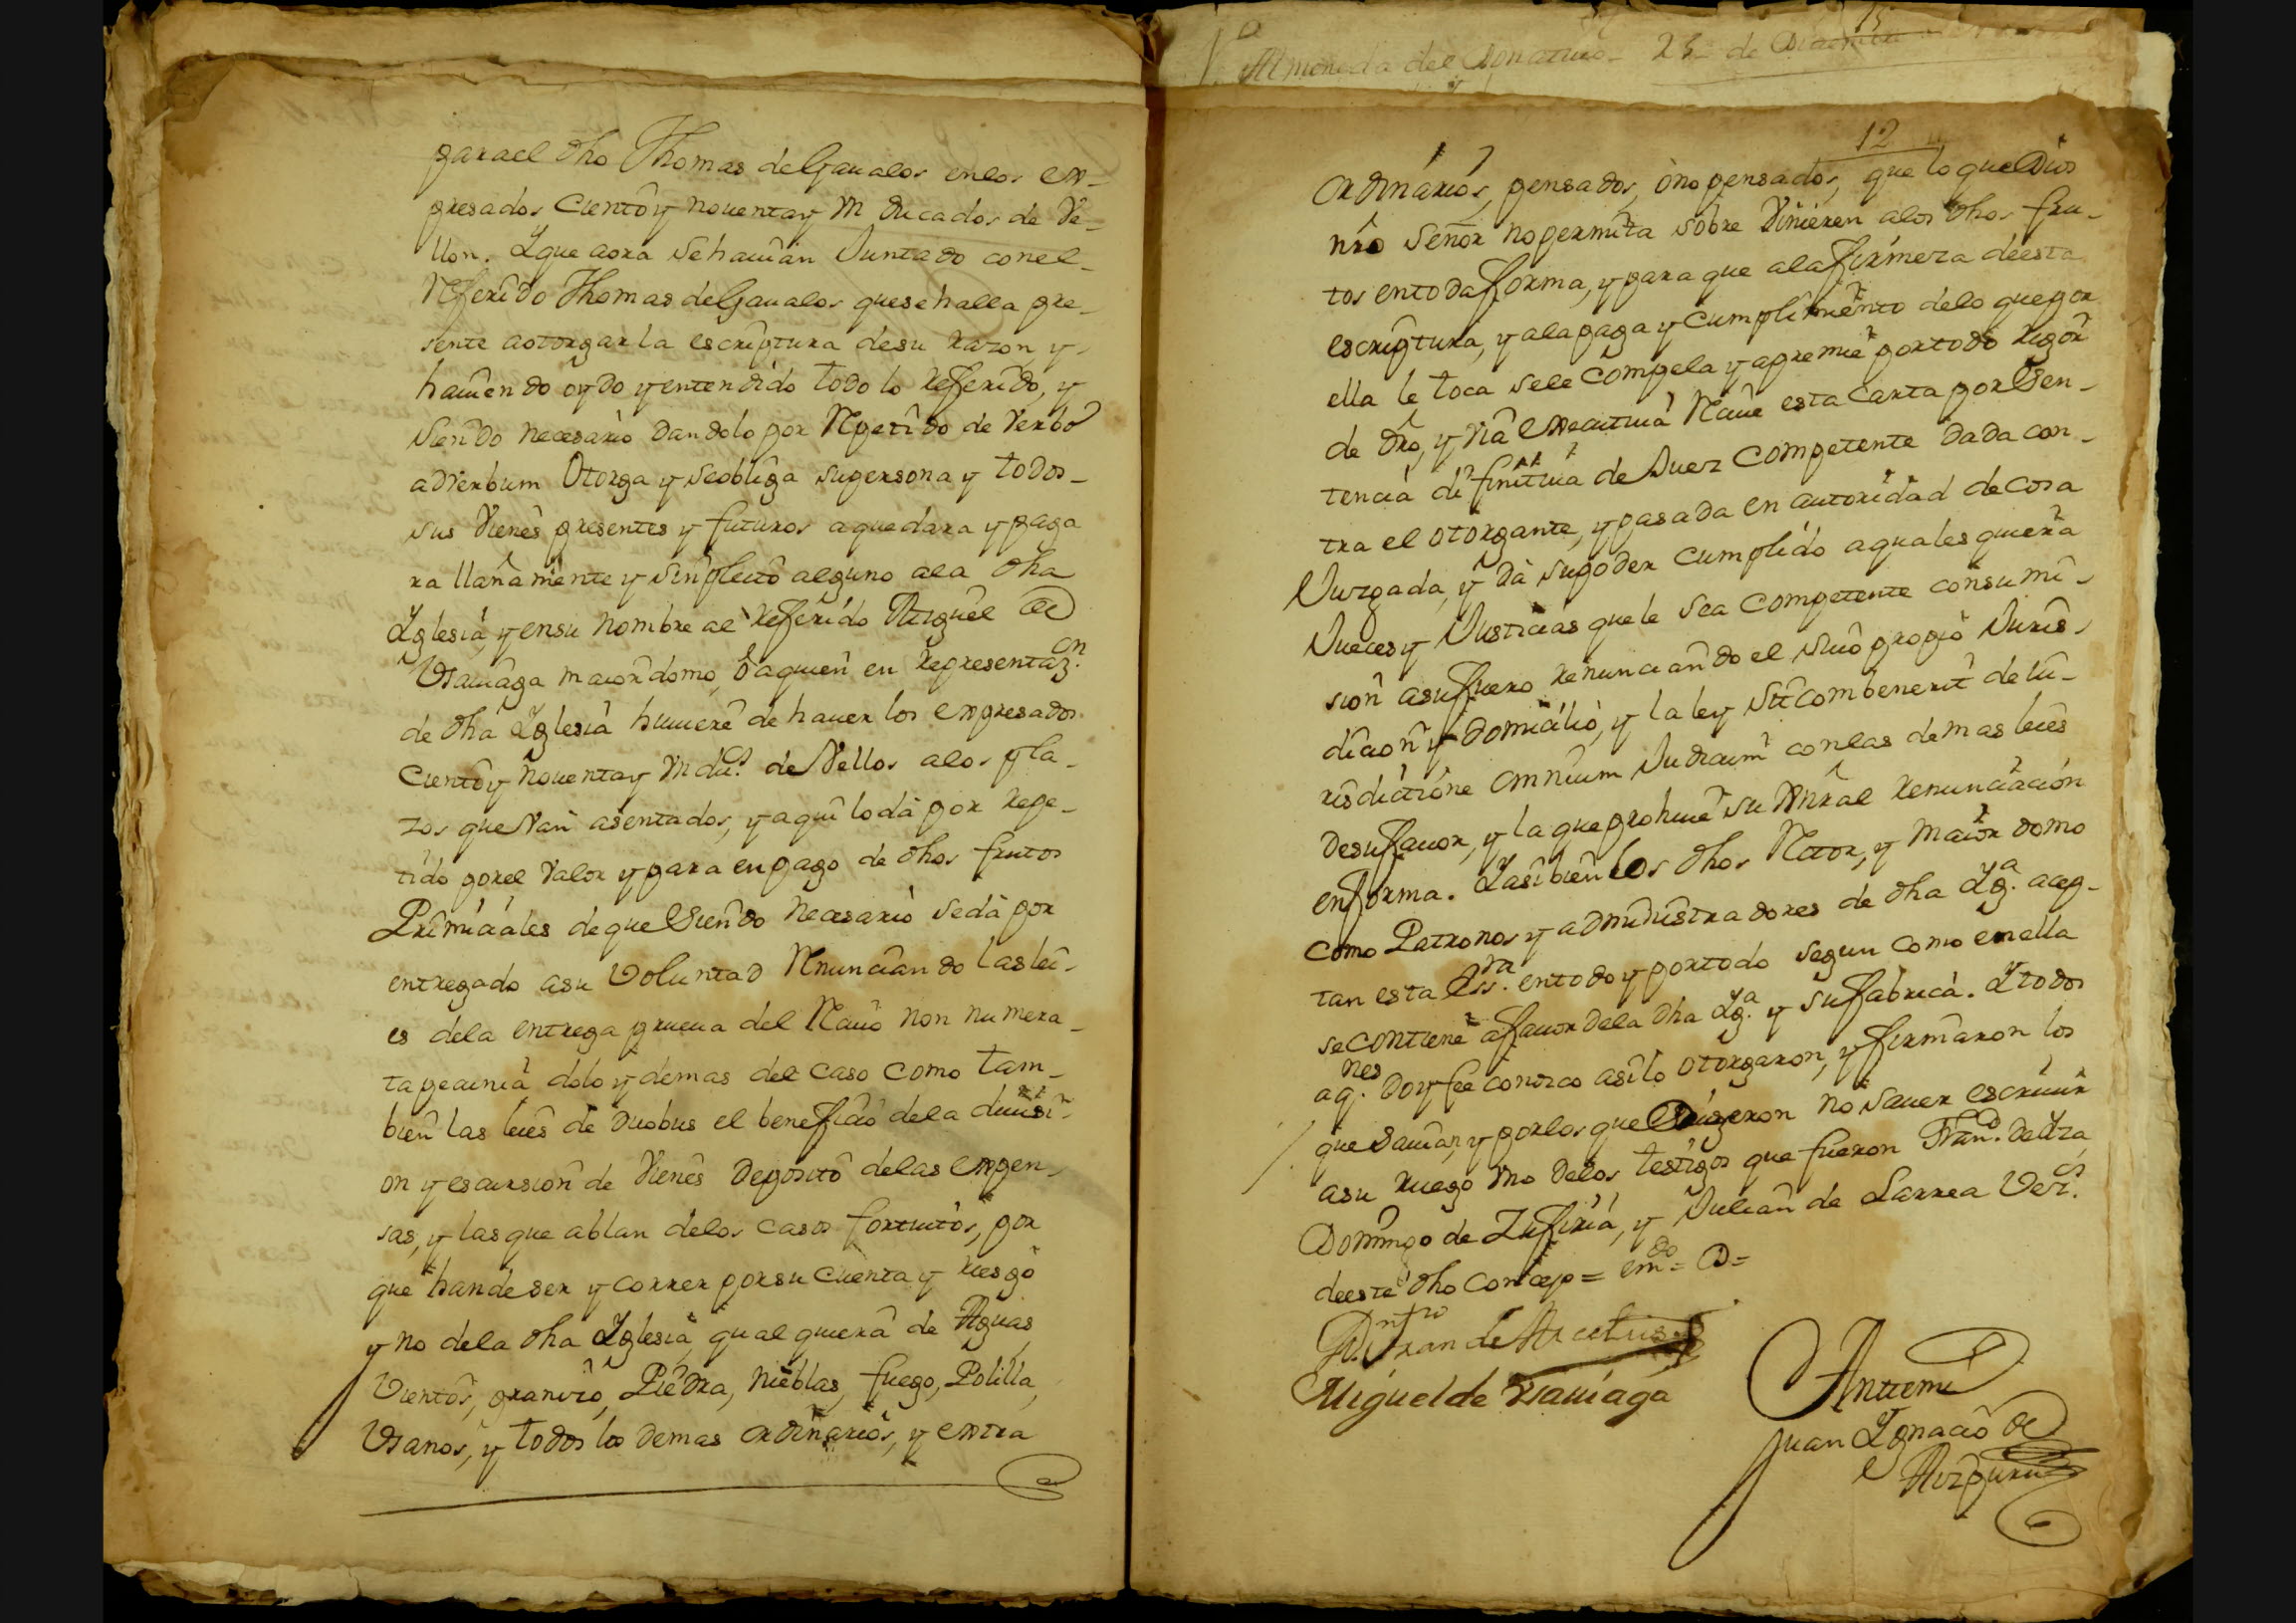 para el dho Thomas de Gaualos en los ex-
presados Ciento y nouenta y Vn ducados de Ve-
llon. Y que aora se hauian Juntado con el
Referido Thomas de Gaualos que se halla pre-
sente a otorgar la escriptura de su razon y
hauiendo oydo y entendido todo lo Referido, y
siendo necesario dandolo por Repetido de Verbo
adverbum Otorga y se obliga su persona y todos
sus Vienes presentes y futuros a que dara y paga
ra llanamente y sin pleito alguno a la dha
Yglesia, y en su nombre al Referido Miguel de
Vsauiaga maiordomo, o a quien en Representaz.on
de dha Yglesia huuiere de hauer los expresados
Ciento y nouenta y Vn du.s de Vellos a los pla-
zos que Van asentados, y aqui lo da por Repe-
tido por el Valor y para en pago de dhos frutos
Primiciales de que Siendo necesario se da por
entregado a su Voluntad Renunciando las lei-
es de la entrega prueua del Reciuo non numera-
ta pecunia dolo y demas del caso como tam-
bien las leies de duobus el beneficio de la diuisi-
on y escursion de Vienes deposito de las expen-
sas, y las que ablan de los casos fortuitos, por
que han de ser y correr por su cuenta y riesgo
y no de la dha Yglesia qualquiera de Aguas,
Vientos, granizo, Piedra, nieblas, fuego, Polilla,
Vsanos, y todos los demas ordinarios, y extra
Almoneda del Donatiuo 25 de
12
ordinarios, pensados, o no pensados, que lo que Dios
nro Señor no permita sobre Viniexen a los dhos fru-
tos en toda forma, y para que a la firmeza de esta
escriptura, y a la paga y cumplimiento de lo que por
ella le toca se le compela y apremie por todo rigor
de dro, y Via executiua Reciue esta Carta por Sen-
tencia difinitiua de Juez Competente dada con-
tra el otorgante, y pasada en autoridad de cosa
Juzgada, y da su poder cumplido a qualesquiera
Jueces y Justicias que le sea competente con sumi-
sion a su fuero renunciando el suio propio Juris-
dicion y domicilio, y la ley Sit combenerit de Ju-
risdictione omnium Judicum con las demas leies
de su fauor, y la que prohiue su Gnral renunciacion
en forma. Y asi bien los dhos Retor, y Maiordomo
como Patronos y administradores de dha Yg.a acep-
tan esta Ess.ra en todo y por todo segun como en ella
se contiene a fauor de la dha Yg.a y su fabrica. Y todos
a q.nes doy fee conozco asi lo otorgaron, y firmaron los
que sauian, y por los que Dixeron no sauer escriuir
a su ruego Vno de los testigos que fueron Fran.co de
Domingo de Zufiria, y Julian de Larrea Vez.s
de este dho concejo = em.do = D =
Miguel de Vsauiaga
Ante mi
Juan Ygnacio de
Aizpuru